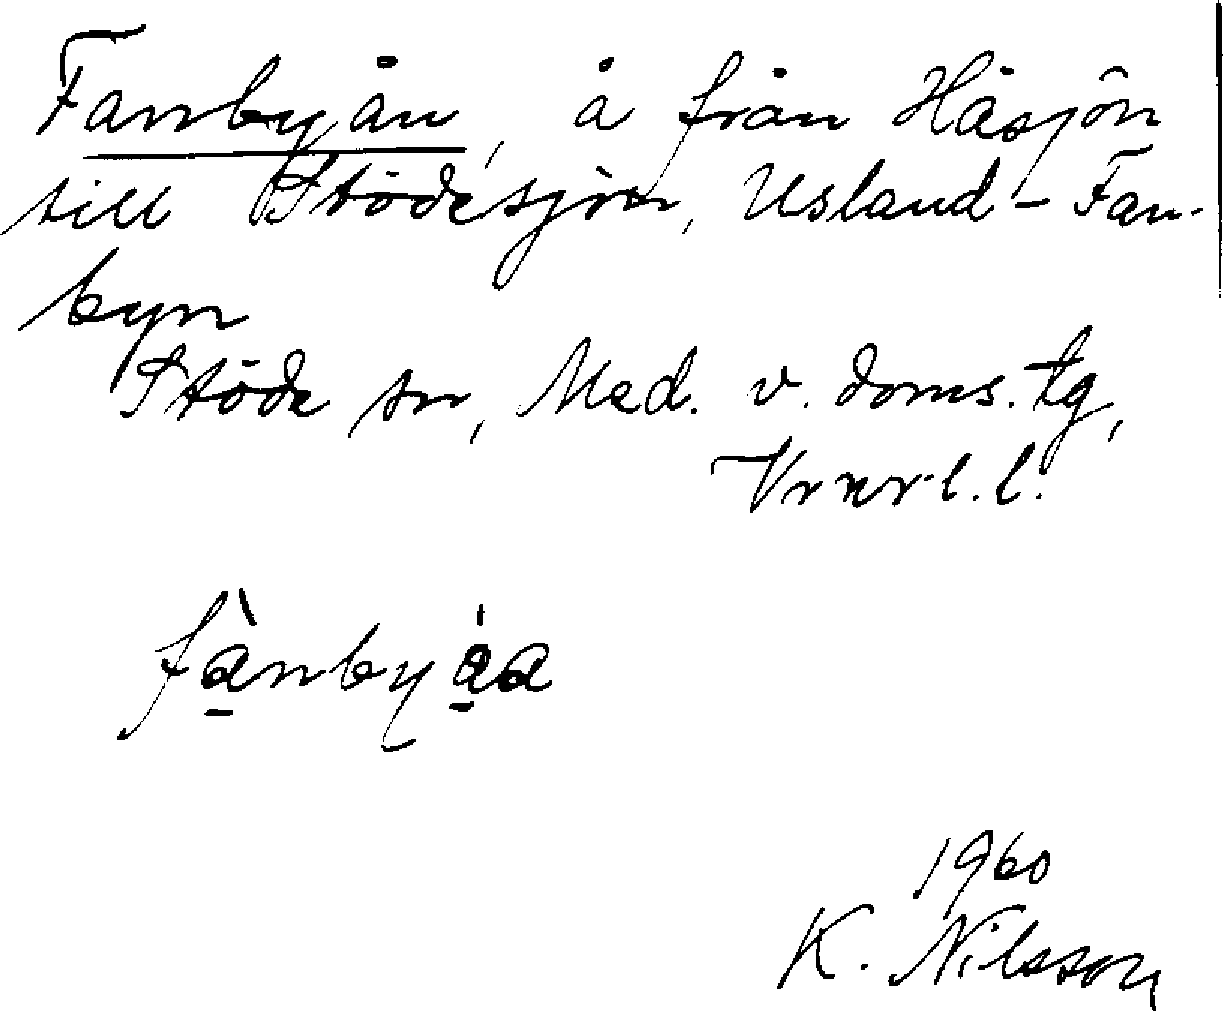 Fanbyån, å från Håsjön
till Stödesjön, Usland - Fan-
byn
Stöde sn, Med. v. doms. tg,
Vrnr l.l.
fànbyåa
1960
K. Nilsson